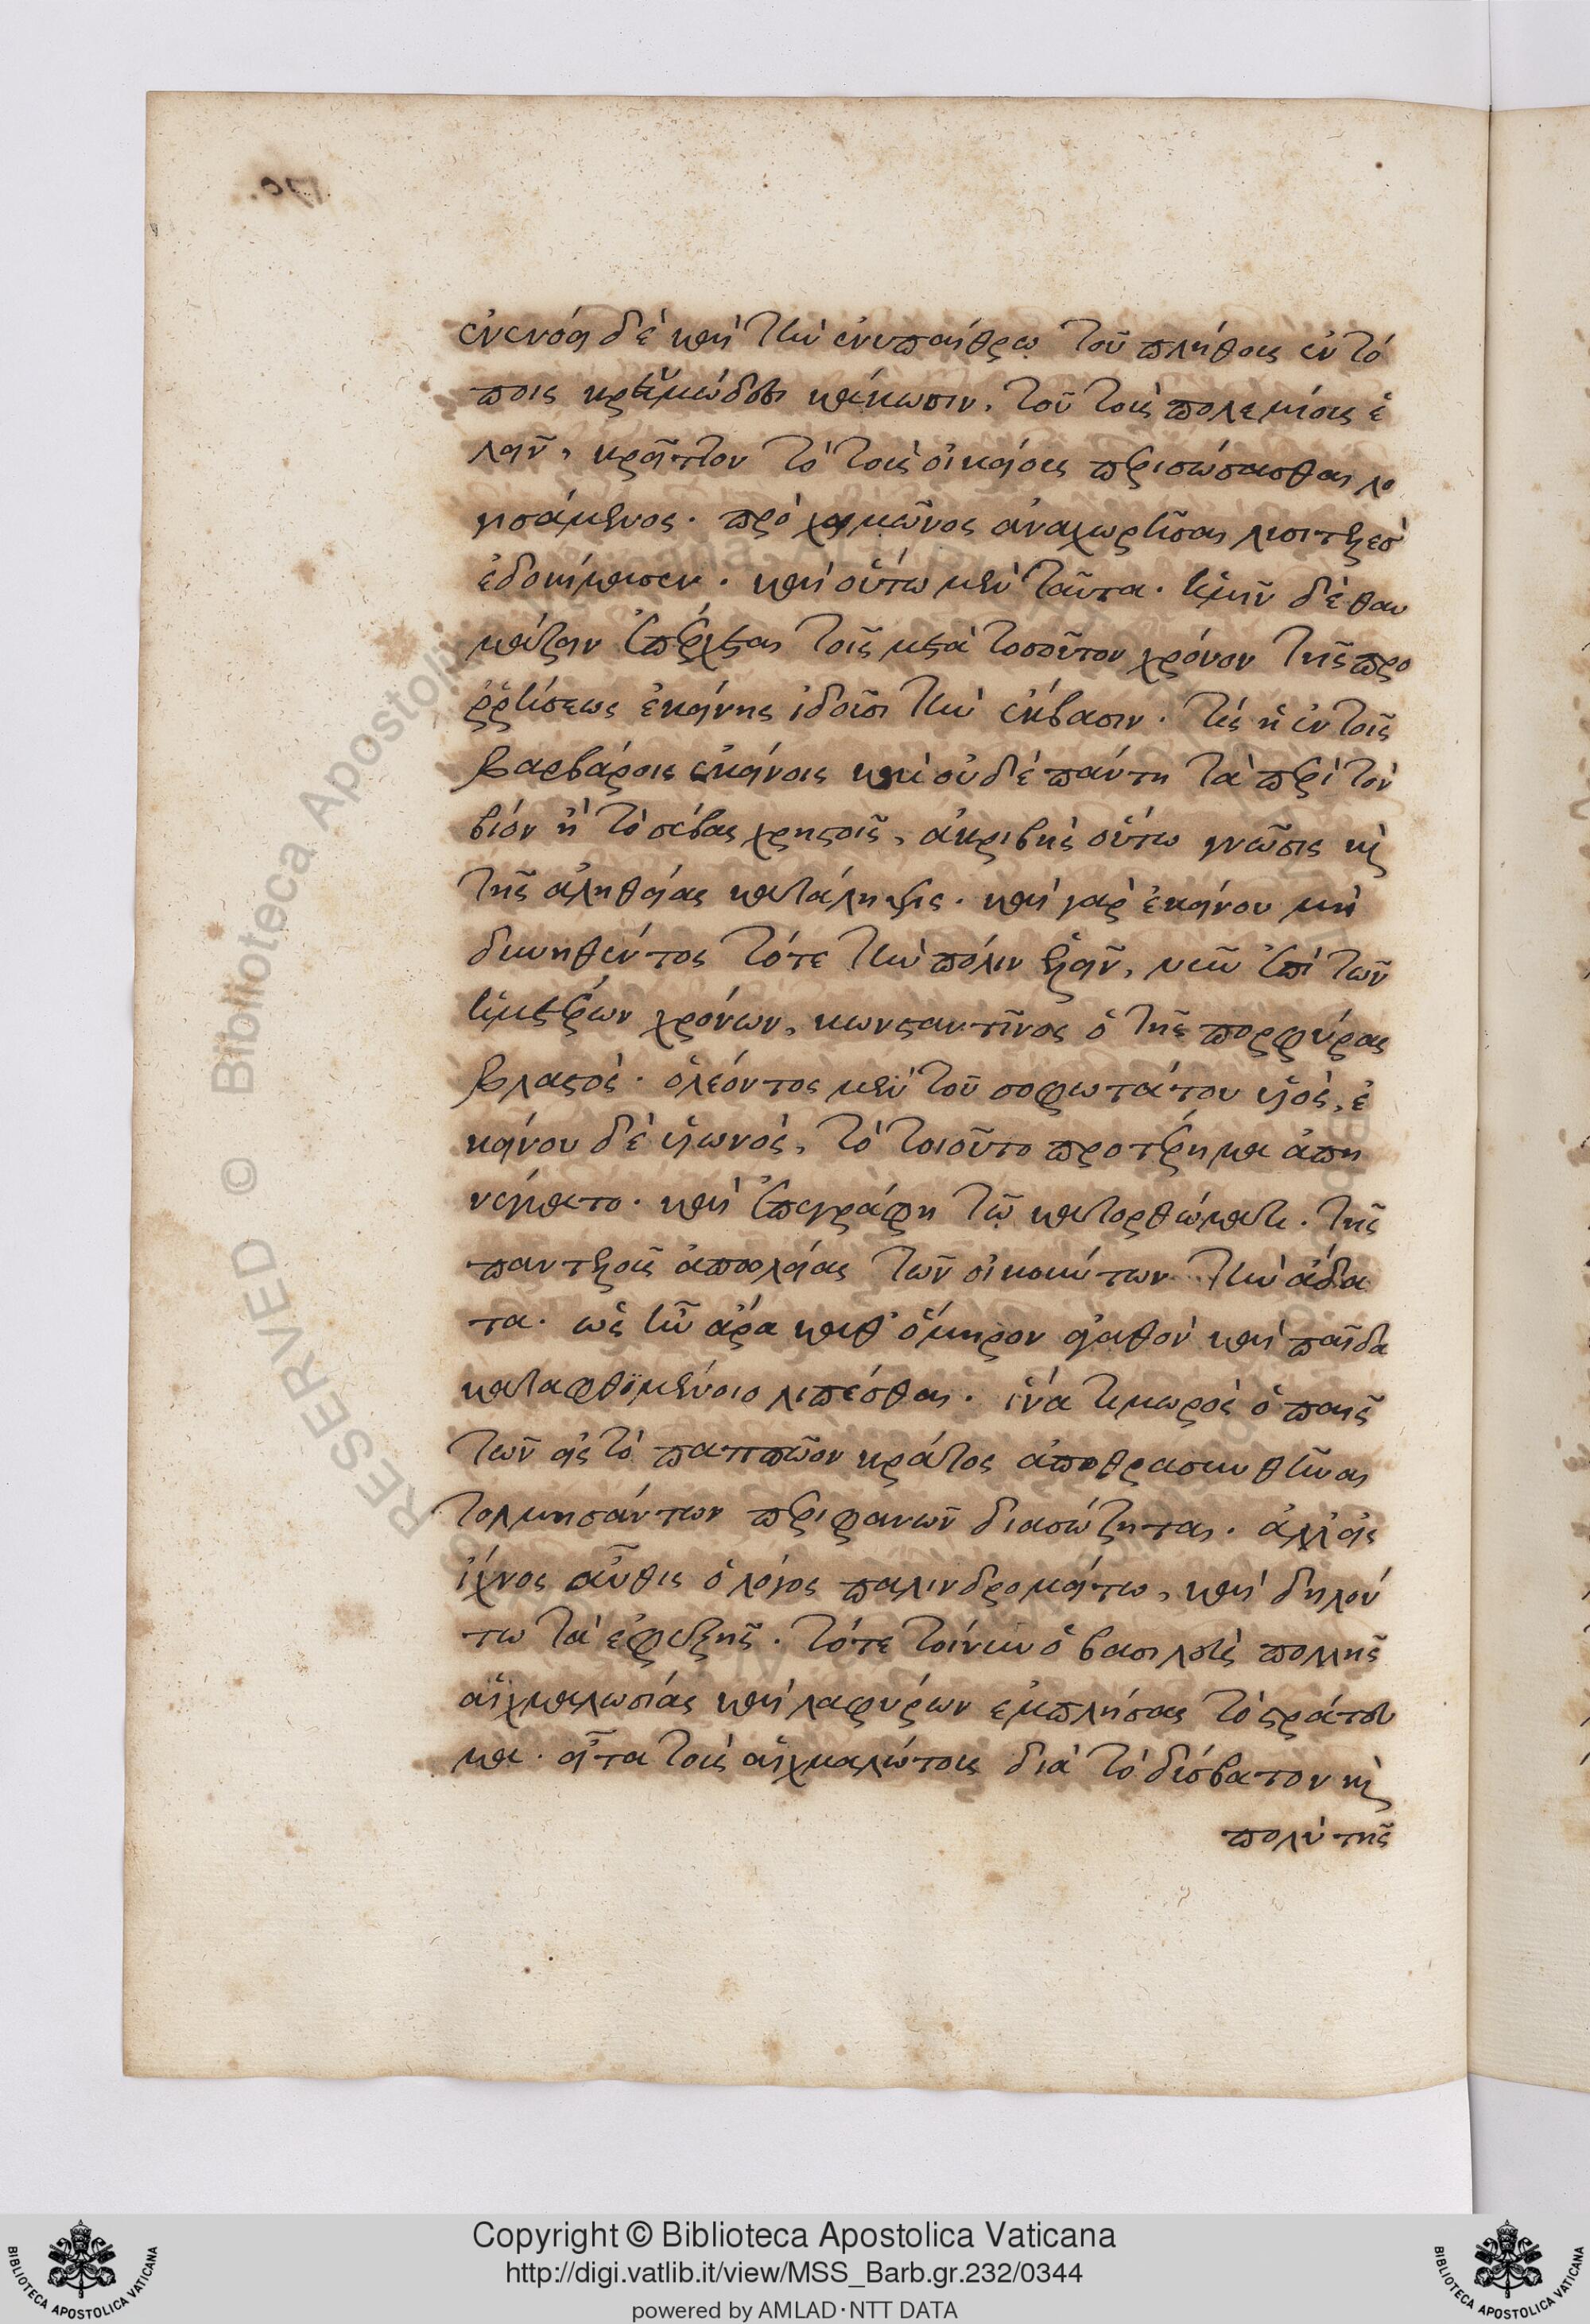 170.
ἐνενόει δὲ καὶ τὴν ἐν ὑπαίθρω τοῦ πλήθους ἐν τό
ποις κρυμώδεσι κάκωσιν. τοῦ τοὺς πολεμίους ἑ
λεῖν, κρεῖττον τὸ τοὺς οἰκείους περισώσασθαι λο
γισάμενος. πρὸ χειμῶνος ἀναχωρῆσαι λυσιτελὲς
ἐδοκίμασεν. καὶ οὕτω μὲν ταῦτα. ἡμῖν δὲ θαυ
μάζειν ἐπέρχεται τοῖς μετὰ τοσοῦτον χρόνον τῆς προ
ῤῥήσεως ἐκείνης ἰδοῦσι τὴν ἔκβασιν. τίς ἡ ἐν τοῖς
βαρβάροις ἐκείνοις καὶ οὐδὲ πάντη τὰ περὶ τὸν
βίον ἢ τὸ σέβας χρηστοῖς, ἀκριβὴς οὕτω γνῶσις καὶ
τῆς ἀληθείας κατάληψις. καὶ γὰρ ἐκείνου μὴ
δυνηθέντος τότε τὴν πόλιν ἑλεῖν, νῦν ἐπὶ τῶν
ἡμετέρων χρόνων, κωνσταντῖνος ὁ τῆς πορφύρας
βλαστὸς. ὁ λέοντος μὲν τοῦ σοφωτάτου υἱὸς, ἐ
κείνου δὲ υἱωνὸς, τὸ τοιοῦτο προτέρημα ἀπη
νέγκατο. καὶ ἐπεγράφη τῷ κατορθώματι. τῆς
παντελοῦς ἀπωλείας τῶν οἰκούντων τὴν ἄδα
τα. ὡς ἦν ἄρα καθ' ὅμηρον ἀγαθὸν καὶ παῖδα
καταφθϊμένοιο λιπέσθαι. ἵνα τιμωρὸς ὁ παῖς
τῶν εἰς τὸ παππῶον κράτος ἀποθρασυνθῆναι
τολμησάντων περιφανῶν διασώζηται. ἀλλ' εἰς
ἴχνος αὖθις ὁ λόγος παλινδρομείτω, καὶ δηλού
τω τὰ ἐφεξῆς. τότε τοίνυν ὁ βασιλεὺς πολλῆς
αἰχμαλωσίας καὶ λαφύρων ἐμπλήσας τὸ στράτευ
μα. εἶτα τοὺς αἰχμαλώτους διὰ τὸ δύσβατον καὶ
πολὺ τῆς
Copyright © Biblioteca Apostolica Vaticana
http://digi.vatlib.it/view/MSS_Barb.gr.232/0344
powered by AMLAD·NTT DATA